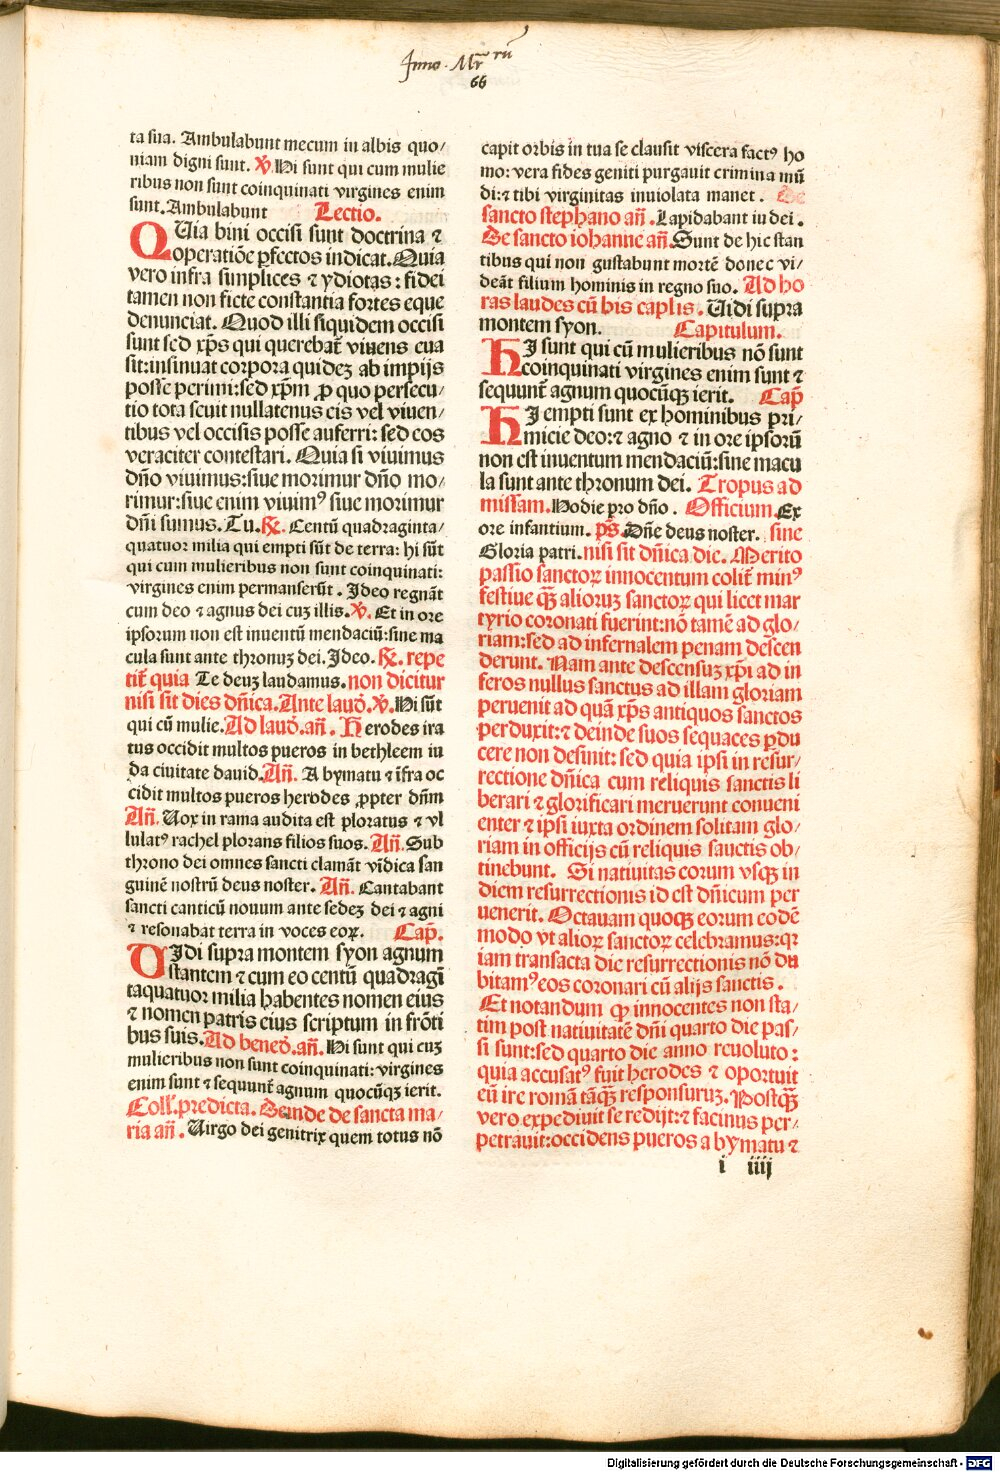 Inno. Mr̄ rū
66
ta sua. Ambulabunt mecum in albis quo/
niam digni sunt. ℣. Hi sunt qui cum mulie
ribus non sunt coinquinati virgines enim
sunt. Ambulabunt Lectio.
QUia bini occisi sunt doctrina ⁊
operatiōe ꝑfectos indicat. Quia
vero infra simplices ⁊ ydiotas: fidei
tamen non ficte constantia fortes eque
denunciat. Quod illi siquidem occisi
sunt sed xp̄s qui querebat᷑ viuens eua
sit: insinuat corpora quidez ab impijs
posse perimi: sed xp̄m ꝓ quo persecu/
tio tota seuit nullatenus eis vel viuen/
tibus vel occisis posse auferri: sed eos
veraciter contestari. Quia si viuimus
dño viuimus: siue morimur dño mo/
rimur: siue enim viuimꝰ siue morimur
dñi sumus. Tu. ℟. Centū quadraginta/
quatuor milia qui empti sūt de terra: hi sūt
qui cum mulieribus non sunt coinquinati:
virgines enim permanserūt. Ideo regnāt
cum deo ⁊ agnus dei cuz illis. ℣. Et in ore
ipsorum non est inuentū mendaciū: sine ma
cula sunt ante thronuz dei. Ideo. ℟. repe
tit᷑ quia Te deuz laudamus. non dicitur
nisi sit dies dñica. Ante laud̄. ℣. Hi sūt
qui cū mulie. Ad laud̄. añ. Herodes ira
tus occidit multos pueros in bethleem iu
da ciuitate dauid. Añ. A bymatu ⁊ īfra oc
cidit multos pueros herodes ꝓpter dñm
Añ. Uox in rama audita est ploratus ⁊ vl
lulatꝰ rachel plorans filios suos. Añ. Sub
throno dei omnes sancti clamāt vīdica san
guinē nostrū deus noster. Añ. Cantabant
sancti canticū nouum ante sedez dei ⁊ agni
⁊ resonabat terra in voces eoꝝ. Cap̄.
UIdi supra montem syon agnum
stantem ⁊ cum eo centū quadragī
taquatuor milia habentes nomen eius
⁊ nomen patris eius scriptum in frōti
bus suis. Ad bened̄. añ. Hi sunt qui cuz
mulieribus non sunt coinquinati: virgines
enim sunt ⁊ sequunt᷑ agnum quocūqꝫ ierit.
Coll̄. predicta. Deinde de sancta ma/
ria añ. Uirgo dei genitrix quem totus nō
capit orbis in tua se clausit viscera factꝰ ho
mo: vera fides geniti purgauit crimina mū
di: ⁊ tibi virginitas inuiolata manet. De
sancto stephano añ. Lapidabant iudei.
De sancto iohanne añ. Sunt de hic stan
tibus qui non gustabunt mortē donec vi/
deāt filium hominis in regno suo. Ad ho
ras laudes cū his caplis. Uidi supra
montem syon. Capitulum.
HI sunt qui cū mulieribus nō sunt
coinquinati virgines enim sunt ⁊
sequunt᷑ agnum quocūqꝫ ierit. Cap̄
HI empti sunt ex hominibus pri/
micie deo: ⁊ agno ⁊ in ore ipsorū
non est inuentum mendaciū: sine macu
la sunt ante thronum dei. Tropus ad
missam. Hodie pro dño. Officium. Ex
ore infantium. p̄s. Dñe deus noster. sine
Gloria patri. nisi sit dñica die. Merito
passio sanctoꝝ innocentum colit᷑ minꝰ
festiue qꝫ̄ alioruz sanctoꝝ qui licet mar
tyrio coronati fuerint: nō tamē ad glo/
riam: sed ad infernalem penam descen
derunt. Nam ante descensuz xp̄i ad in
feros nullus sanctus ad illam gloriam
peruenit ad quā xp̄s antiquos sanctos
perduxit: ⁊ deinde suos sequaces ꝑdu
cere non desinit: sed quia ipsi in resur/
rectione dñica cum reliquis sanctis li
berari ⁊ glorificari meruerunt conueni
enter ⁊ ipsi iuxta ordinem solitam glo/
riam in officijs cū reliquis sanctis ob/
tinebunt. Si natiuitas eorum vsqꝫ in
diem resurrectionis id est dñicum per
uenerit. Octauam quoqꝫ eorum eodē
modo vt alioꝝ sanctoꝝ celebramus: qꝛ
iam transacta die resurrectionis nō du
bitamꝰ eos coronari cū alijs sanctis.
Et notandum ꝙ innocentes non sta/
tim post natiuitatē dñi quarto die pas/
si sunt: sed quarto die anno reuoluto:
quia accusatꝰ fuit herodes ⁊ oportuit
eū ire romā tāqꝫ̄ responsuruz. Postqꝫ̄
vero expediuit se redijt: ⁊ facinus per/
petrauit: occidens pueros a bymatu ⁊
i iiij
Digitalisierung gefördert durch die Deutsche Forschungsgemeinschaft - DFG